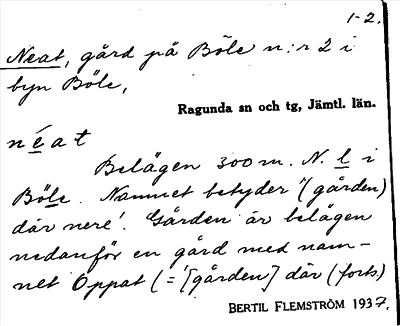 1-2.
Neat, gård på Böle n:r 2 i
byn Böle,
Ragunda sn och tg, Jämtl. län.
néat
Belägen 300 m. N. l i
Böle. Namnet betyder '(gården)
där nere'. Gården är belägen
nedanför en gård med nam-
net Oppat (='[gården] där (forts)
BERTIL FLEMSTRÖM 1937.